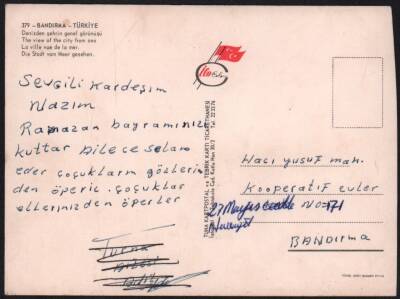 379 – BANDIRMA – TÜRKİYE
Denizden şehrin genel görünüşü
The view of the city from sea
La ville vue de la mer.
Die Stadt vom Meer gesehen.
Sevgili Kardeşim
Nazım
Ramazan bayramınızı
kutlar bilece selam
eder çocukların gözlerin
den öperiz. çocuklar
ellerinizden öperler
TUNA KARTPOSTAL ve TEBRİK KARTI TİCARETHANESİ
Hacı yusuf mah.
Kooperatif evler
27 Mayıs cadde No=171
BANDIRMA